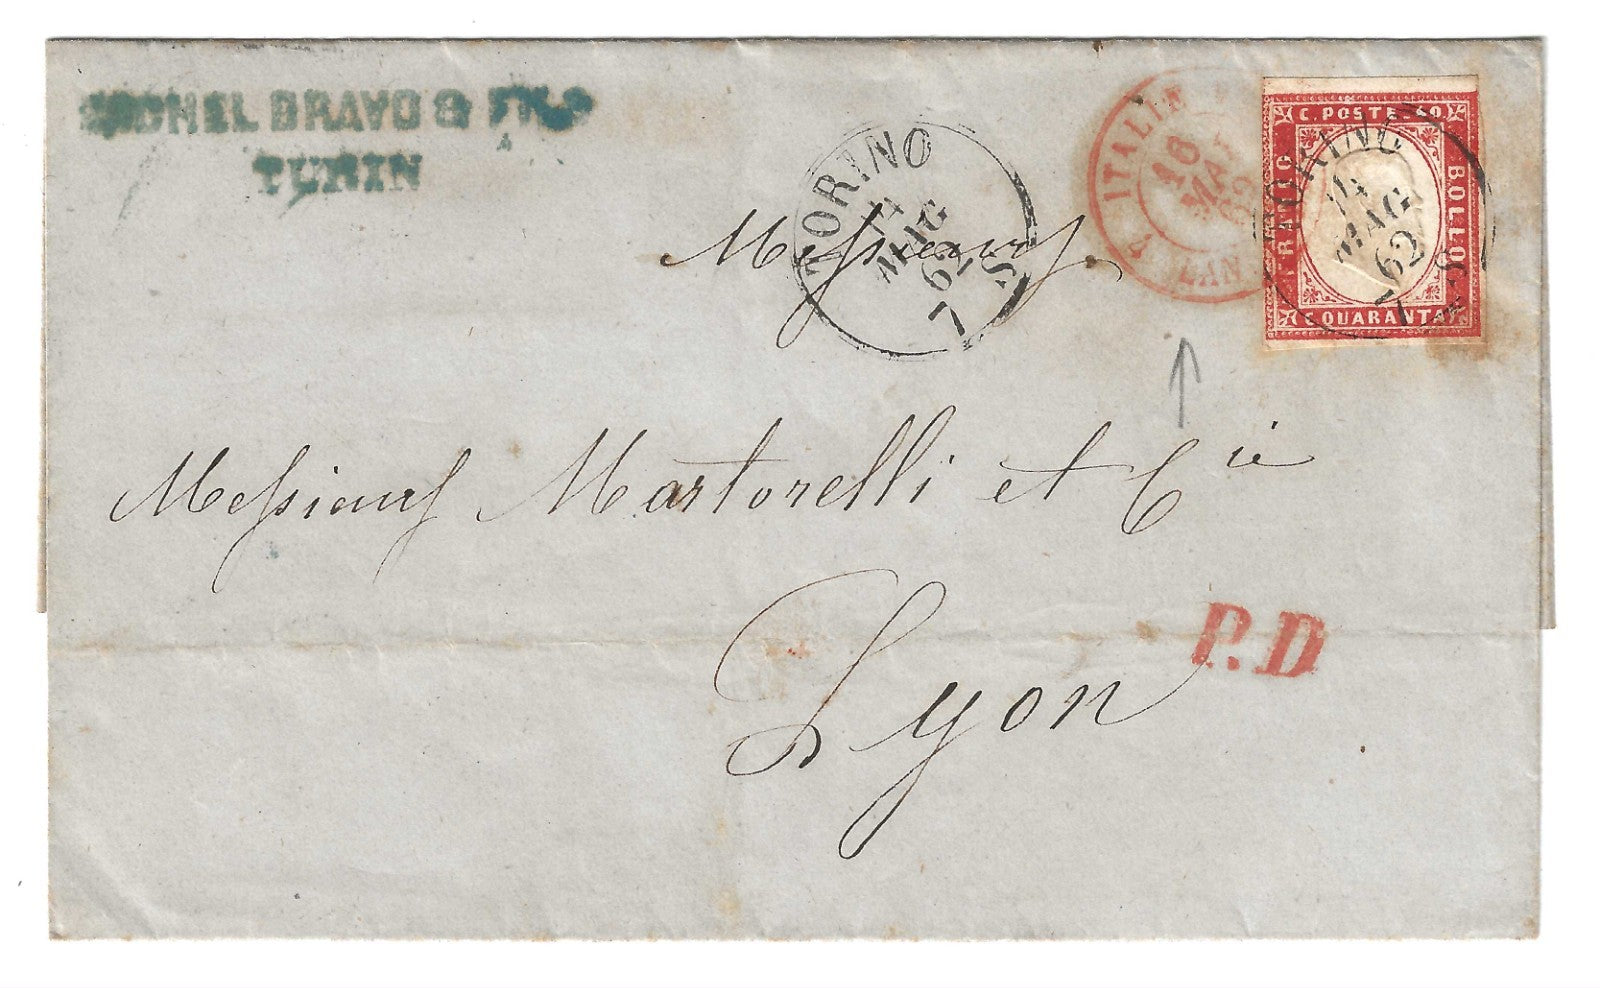 BRAVO & FILS
TURIN
Messieurs
Messieurs Martorelli et Cie
Lyon
P.D
TORINO
14
MAG
62
7 S
ITALIE
16
MAI
62
LAN
C. POSTE 40
FRANCO
BOLLO
C. QUARANTA
TORINO
14
MAG
62
7 S